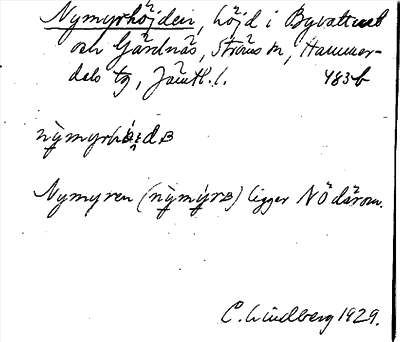 Nymyrhöjden, höjd i Byvattnet
och Gärdnäs, Ströms sn, Hammer-
dals tg, Jämtl. l. 483b
nỳmyrhö̀idɐ
Nymyren (nỳmýrɐ) ligger NÖ därom.
C. Lindberg 1929.